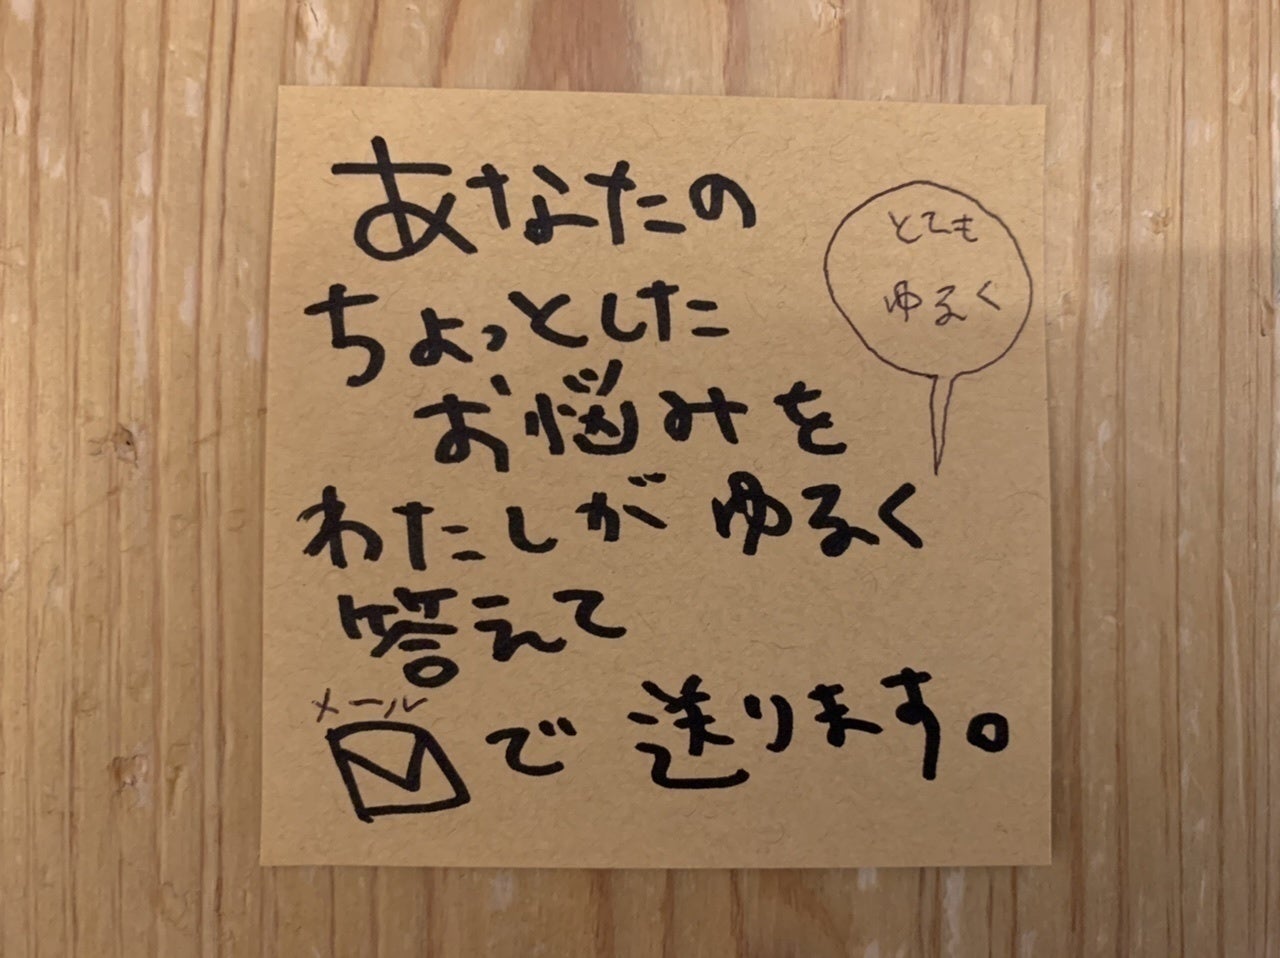 あなたの
ちょっとした
お悩みを
わたしがゆるく
とても
ゆるく
答えて
メール
で送ります。